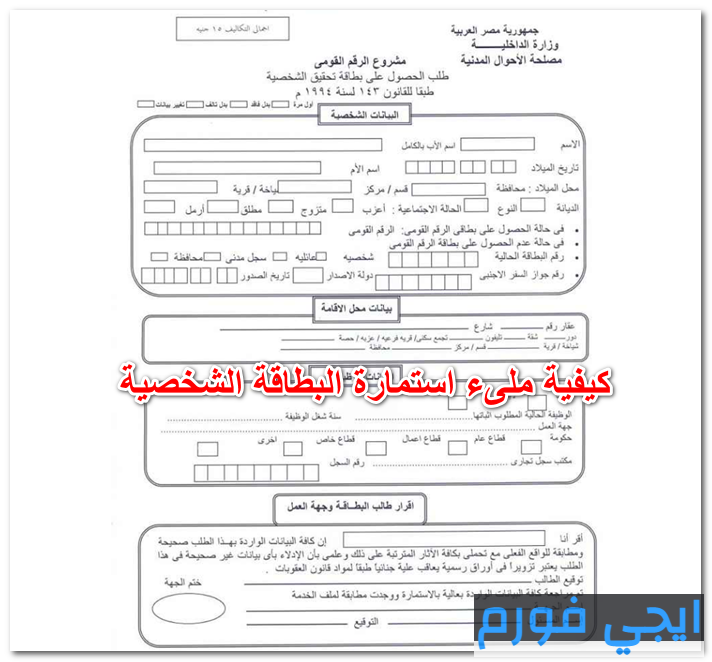 اجمالى التكاليف ١٥ جنيه
جمهورية مصر العربية
وزارة الداخليـــــة
مصلحة الأحوال المدنية
مشروع الرقم القومى
طلب الحصول على بطاقة تحقيق الشخصية
طبقا للقانون ١٤٣ لسنة ١٩٩٤ م
أول مرة بدل فاقد بدل تالف تغيير بيانات
البيانات الشخصية
الاسم اسم الأب بالكامل
تاريخ الميلاد اسم الأم
محل الميلاد : محافظة قسم / مركز شياخة / قرية
الديانة النوع الحالة الاجتماعية : أعزب متزوج مطلق أرمل
• فى حالة الحصول على بطاقى الرقم القومى: الرقم القومى
• فى حالة عدم الحصول على بطاقة الرقم القومى
• رقم البطاقة الحالية شخصيه عائليه سجل مدنى محافظة
• رقم جواز السفر الاجنبى دولة الاصدار تاريخ الصدور
بيانات محل الاقامة
عقار رقم شارع
دور شقة تليفون تجمع سكنى/ قريه فرعيه / عزبه / حصة
شياخة / قرية قسم / مركز محافظة
كيفية ملىء استمارة البطاقة الشخصية
الوظيفة الحالية المطلوب اثباتها سنة شغل الوظيفة
جهة العمل
حكومة قطاع عام قطاع اعمال قطاع خاص اخرى
مكتب سجل تجارى رقم السجل
اقرار طالب البطاقة وجهة العمل
أقر أنا إن كافة البيانات الواردة بهـذا الطلب صحيحة
ومطابقة للواقع الفعلى مع تحملى بكافة الأثار المترتبة على ذلك وعلمى بأن الإدلاء بأى بيانات غير صحيحة فى هذا
الطلب يعتبر تزويرا فى أوراق رسمية يعاقب علية جنائياً طبقا لمواد قانون العقوبات
توقيع الطالب ختم الجهة
تم مراجعة كافة البيانات الواردة بعالية بالاستمارة ووجدت مطابقة لملف الخدمة
التوقيع
ايجي فورم